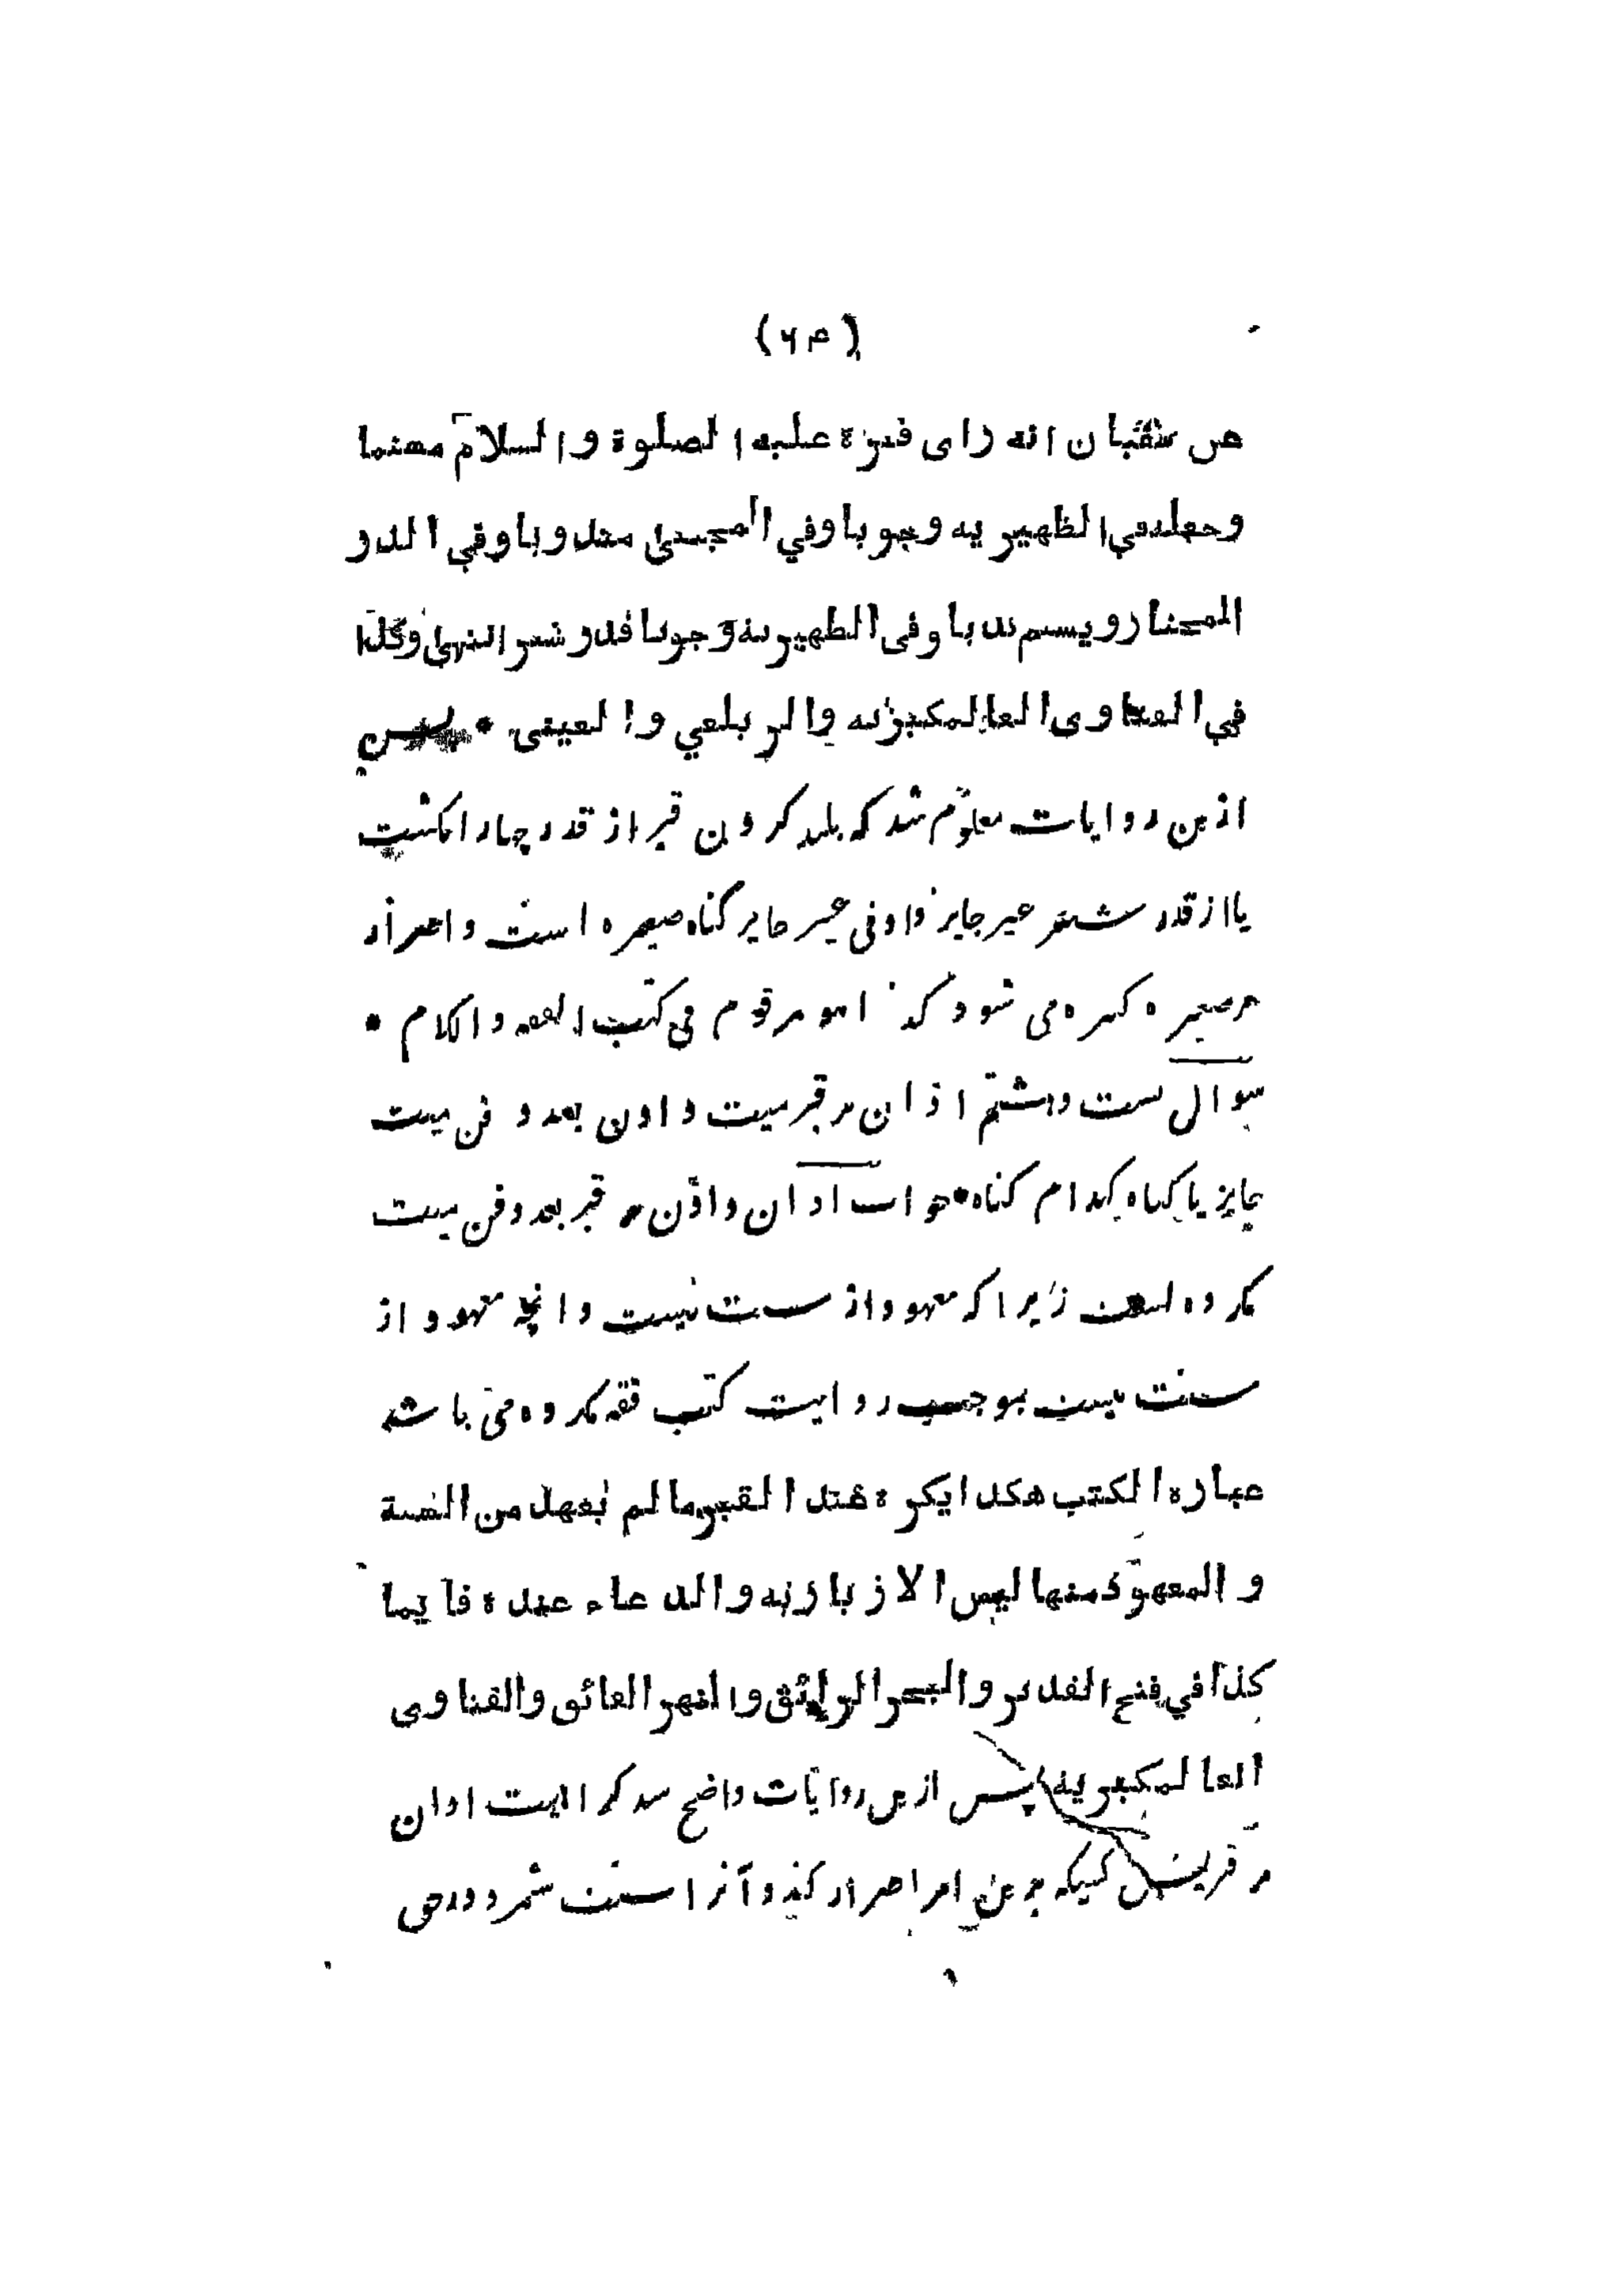 (۶۴)
عن سفيان انه رای قبره عليه الصلوة و السلام مسنما
وجعله في الظهيريه وجوبا وفي المجتبى مندوبا وفي الدر
المختار ويسنم ندبا وفي الظهيريه وجوبا قدر شبر انتهى وكذا
في الفتاوى العالمكيريه والزيلعي والعيني * پس
ازين روايات معلوم شد كه بلند كردن قبر از قدر چهار انگشت
يا از قدر شبر غير جايز و ادنى غير جايز گناه صغيره است و اصرار
بر صغيره كبيره مى شود كذا هو مرقوم في كتب الفقه و الكلام *
سوال بست وهشتم اذان بر قبر ميت دادن بعد دفن ميت
جايز يا گناه كدام گناه * جواب اذان دادن بر قبر بعد دفن ميت
مكروه است زيرا كه معهود از سنت نيست و انچه معهود از
سنت نيست بموجب روايت كتب فقه مكروه مى باشد
عبارة الكتب هكذا يكره عند القبر ما لم يعهد من السنة
و المعهود منها ليس الا زيارته والدعاء عنده قايما
كذا في فتح القدير والبحر الرائق و النهر الفائق والفتاوى
العالمكيريه پس ازين روايات واضح شد كراهيت اذان
بر قبر ليكن كسيكه برين امر اصرار كند و آنرا سنت شمرد و در حق